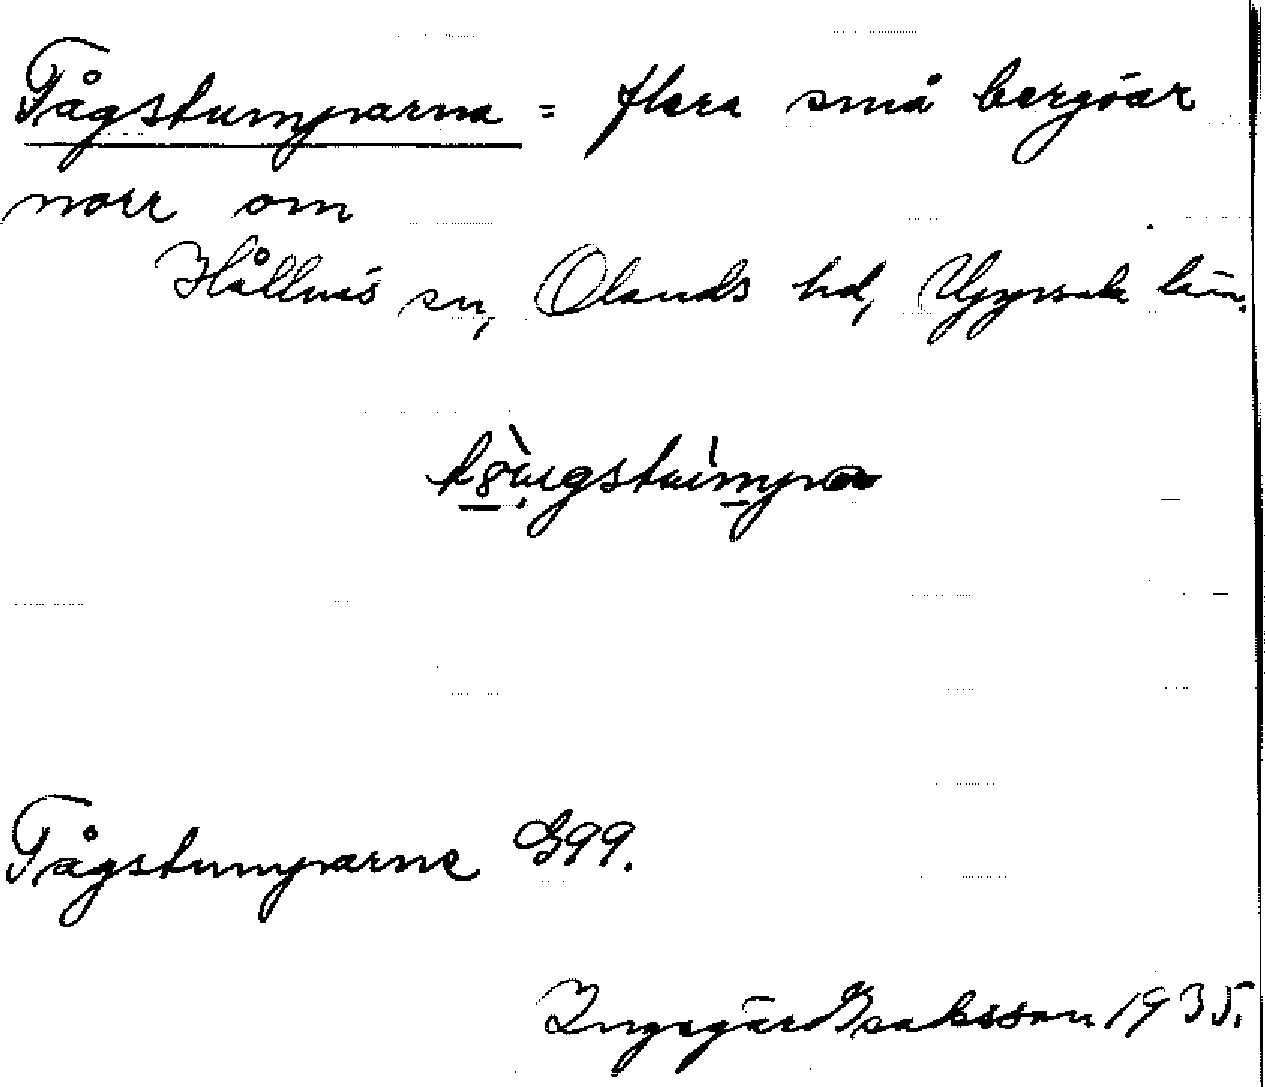 Tågstumparna = flera små bergöar
norr om
Hållnäs sn, Olands hd, Uppsala län.
Tågstumparne G99.
Ingegärd Isaksson 1935.